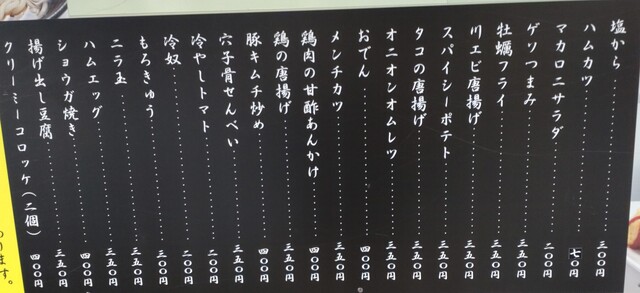 塩から 三〇〇円
ハムカツ 七〇円
マカロニサラダ 二〇〇円
ゲソつまみ 三五〇円
牡蠣フライ 三五〇円
川エビ唐揚げ 三五〇円
スパイシーポテト 三五〇円
タコの唐揚げ 三五〇円
オニオンオムレツ 三五〇円
おでん 四〇〇円
メンチカツ 三五〇円
鶏肉の甘酢あんかけ 四〇〇円
鶏の唐揚げ 三五〇円
豚キムチ炒め 四〇〇円
穴子骨せんべい 三五〇円
冷やしトマト 二〇〇円
冷奴 二〇〇円
もろきゅう 三〇〇円
ニラ玉 三五〇円
ハムエッグ 三五〇円
ショウガ焼き 四〇〇円
揚げ出し豆腐 三五〇円
クリーミーコロッケ(二個) 四〇〇円
ります。